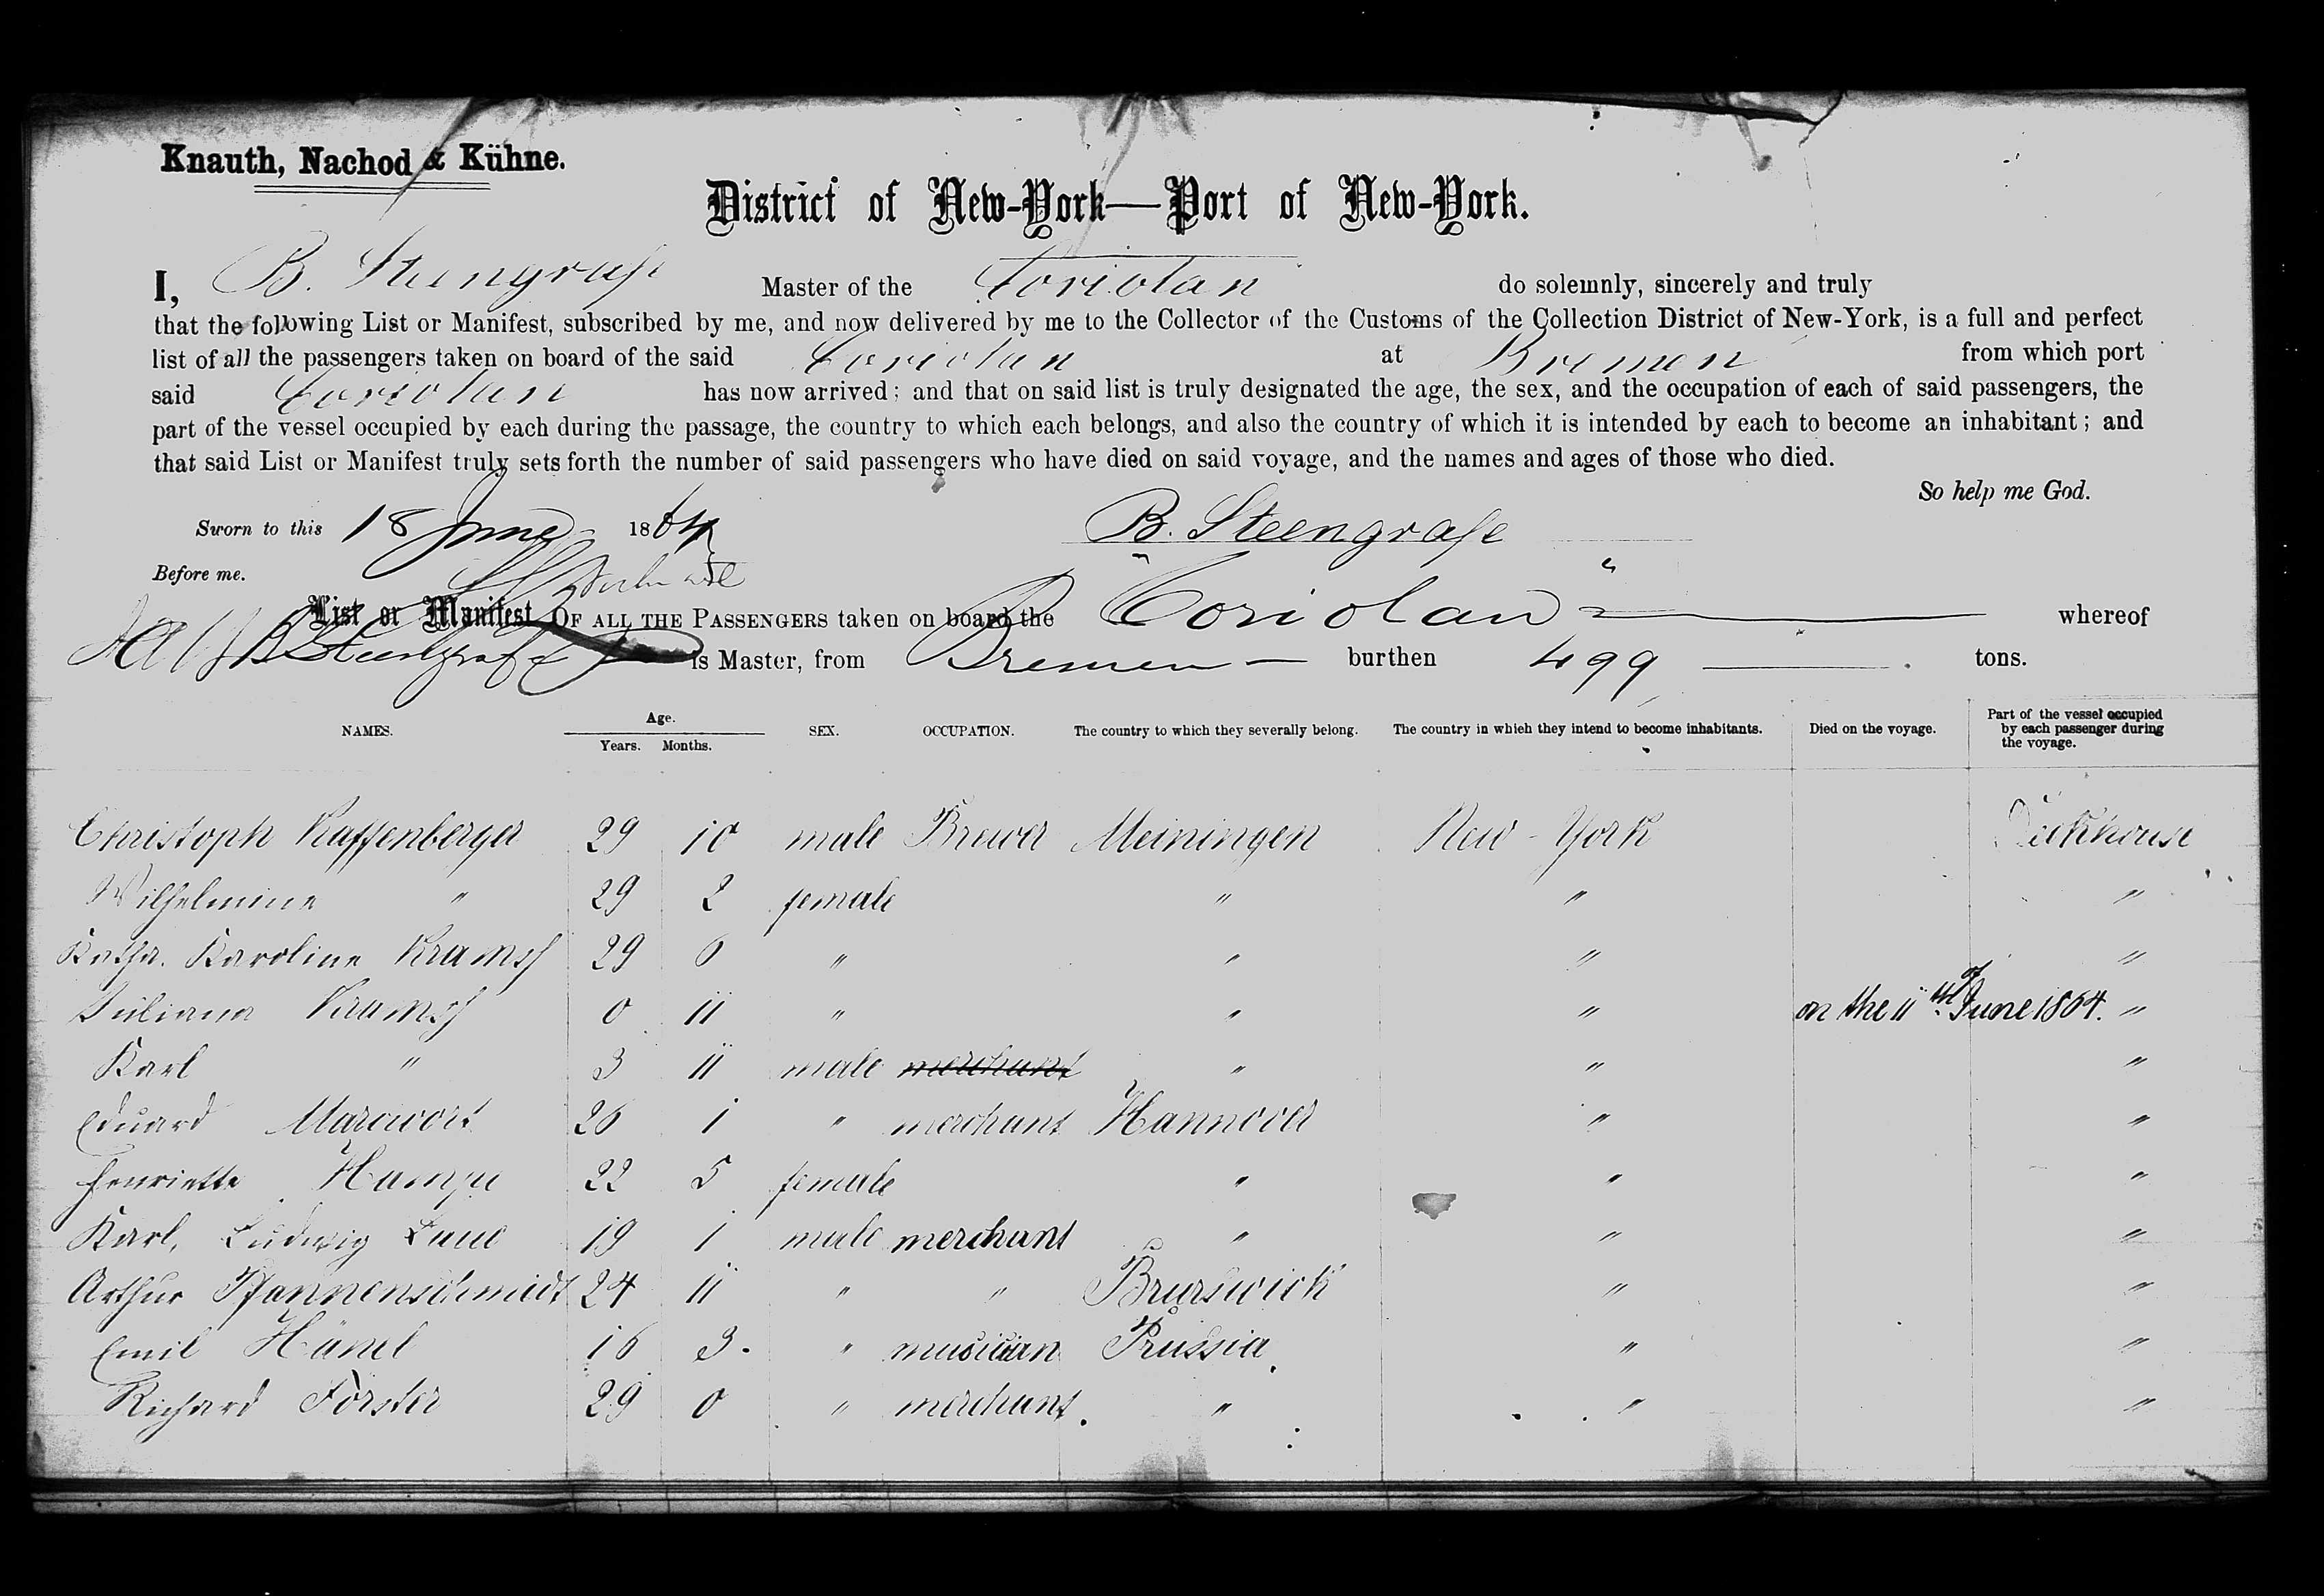 Knauth, Nachod & Kühne.
District of New-York—Port of New-York.
I, B. Steengrafe Master of the Coriolan do solemnly, sincerely and truly
that the following List or Manifest, subscribed by me, and now delivered by me to the Collector of the Customs of the Collection District of New-York, is a full and perfect
list of all the passengers taken on board of the said Coriolan at Bremen from which port
said Coriolan has now arrived; and that on said list is truly designated the age, the sex, and the occupation of each of said passengers, the
part of the vessel occupied by each during the passage, the country to which each belongs, and also the country of which it is intended by each to become an inhabitant; and
that said List or Manifest truly sets forth the number of said passengers who have died on said voyage, and the names and ages of those who died.
So help me God.
Sworn to this 18 June 1864 B. Steengrafe
Before me.
List or Manifest OF ALL THE PASSENGERS taken on board the "Coriolan" whereof
B Steengrafe is Master, from Bremen — burthen 499 tons.
NAMES. Age. Years. Months. SEX. OCCUPATION. The country to which they severally belong. The country in which they intend to become inhabitants. Died on the voyage. Part of the vessel occupied by each passenger during the voyage.
Christoph Kaffenberger 29 10 male Brewer Meiningen New-York Deckhouse
Wilhelmine " 29 2 female " " "
Katha. Karoline Kramsch 29 6 " " " "
Juliana Kramsch 0 11 " " " on the 11th of June 1864. "
Karl " 3 11 male merchant " " "
Eduard Marwort 26 1 " merchant Hannover " "
Henriette Hampe 22 5 female " " "
Karl, Ludwig 19 1 male merchant " " "
Arthur Pfannenschmidt 24 11 " " Brunswick " "
Emil Hänel 16 3. " musician Prussia " "
Richard Förster 29 0 " merchant. " " "